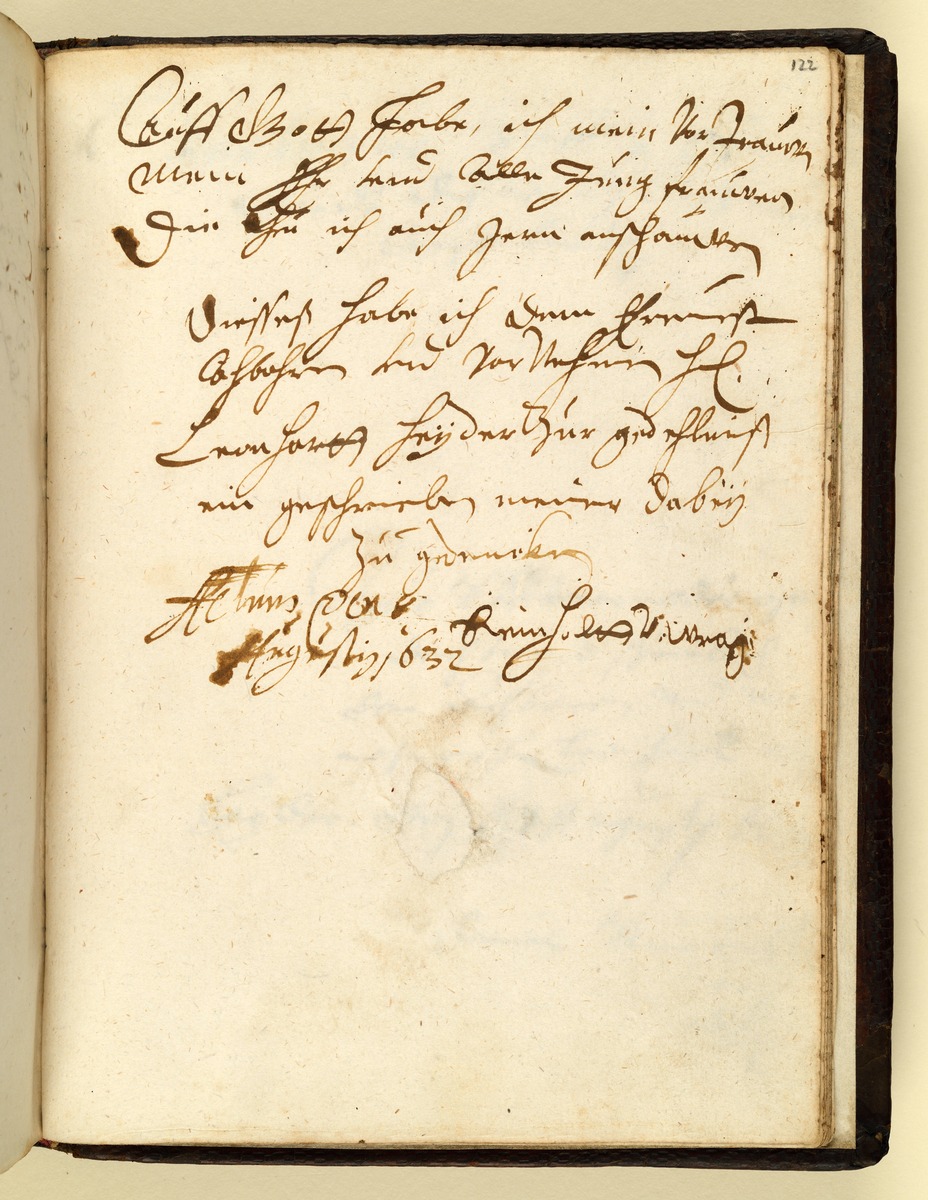 122
Auff Gott habe, ich mein vortrauwen
Mein Ehr und Alle Jung frauwen
Die thu ich auch gern anschauwen
Diesses habe ich dem Ernuest
Achbahren und vor Nehmen
Leonhartt Heyder Zur gedechtnis
ein geschrieben meiner dabey
Zu gedencken
Actum den
Augusty 1632 Reinholtt